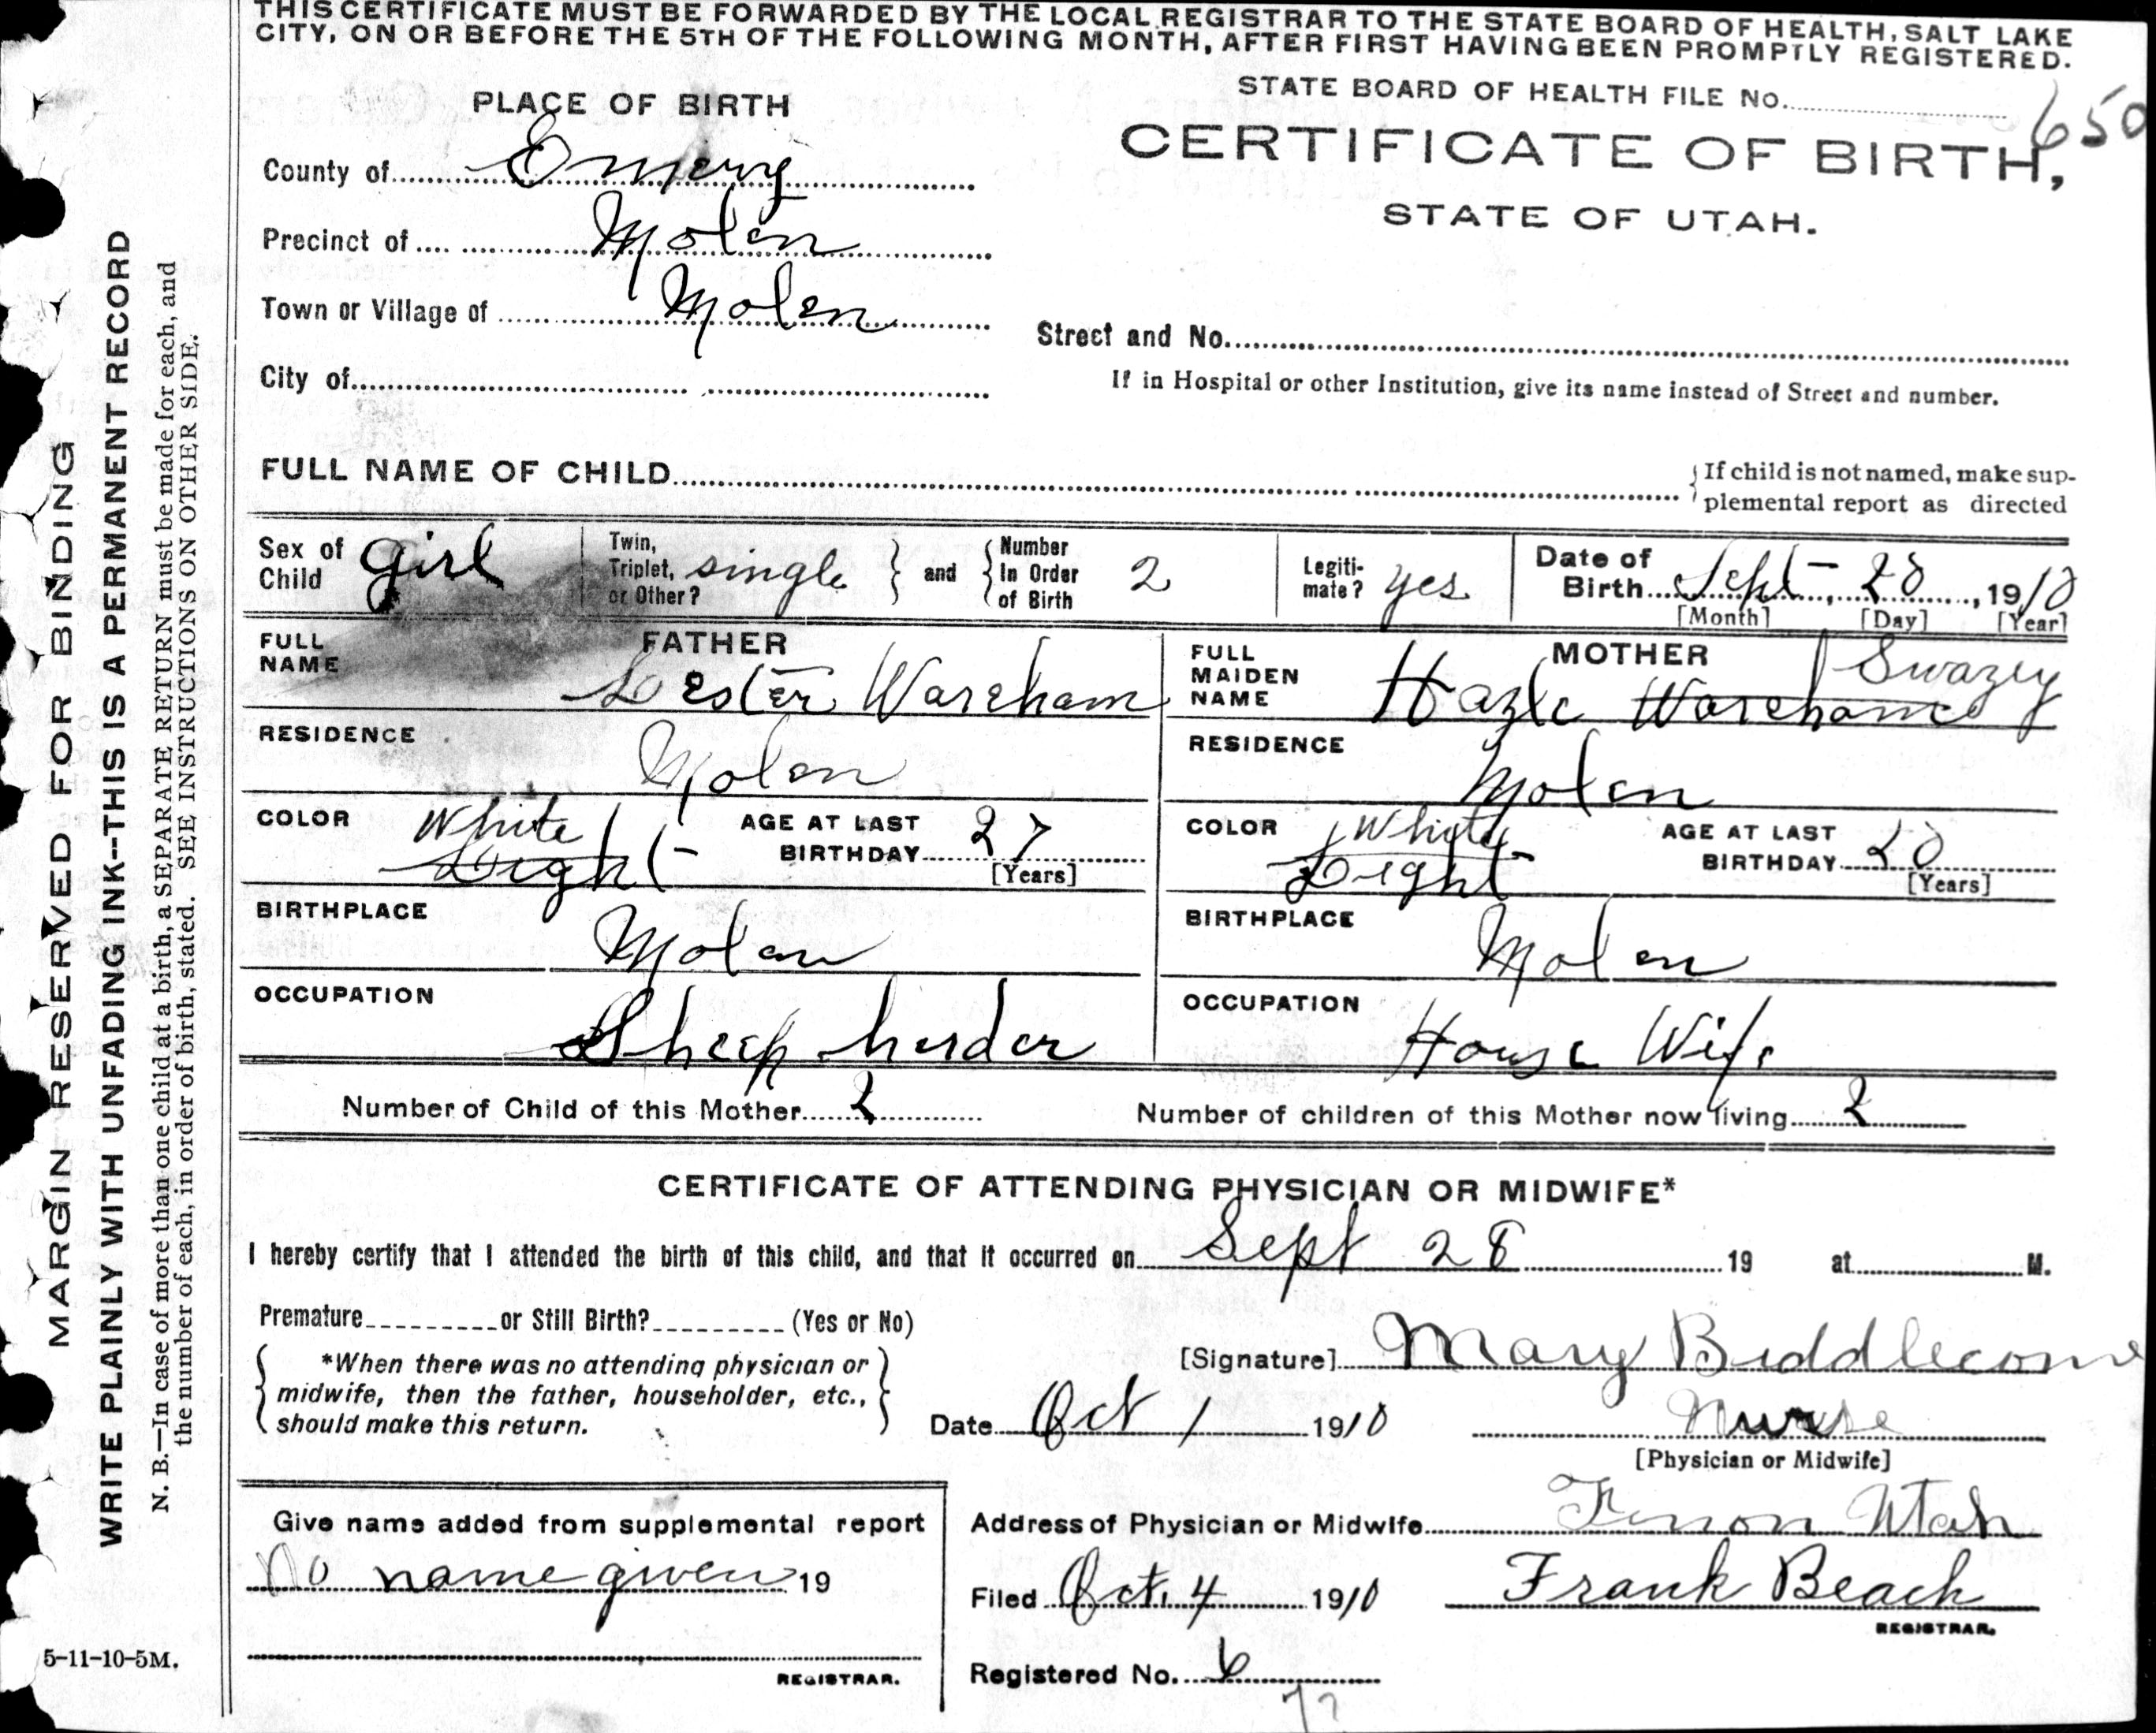 THIS CERTIFICATE MUST BE FORWARDED BY THE LOCAL REGISTRAR TO THE STATE BOARD OF HEALTH, SALT LAKE
CITY, ON OR BEFORE THE 5TH OF THE FOLLOWING MONTH, AFTER FIRST HAVING BEEN PROMPTLY REGISTERED.
STATE BOARD OF HEALTH FILE No. 650
PLACE OF BIRTH
CERTIFICATE OF BIRTH,
STATE OF UTAH.
County of Emery
Precinct of Molen
Town or Village of Molen
Street and No.
City of
If in Hospital or other Institution, give its name instead of Street and number.
FULL NAME OF CHILD
{If child is not named, make sup-
plemental report as directed
Sex of Child girl
Twin, Triplet, or Other? single } and { Number In Order of Birth 2
Legiti-mate? yes
Date of Birth Sept - 28, 1910
[Month] [Day] [Year]
FATHER
FULL NAME Lester Wareham
MOTHER
FULL MAIDEN NAME Hazle Wareham Swazey
RESIDENCE Molen
RESIDENCE Molen
COLOR White Light
AGE AT LAST BIRTHDAY 27
[Years]
COLOR White Light
AGE AT LAST BIRTHDAY 20
[Years]
BIRTHPLACE Molen
BIRTHPLACE Molen
OCCUPATION Sheep herder
OCCUPATION House Wife
Number of Child of this Mother 2
Number of children of this Mother now living 2
CERTIFICATE OF ATTENDING PHYSICIAN OR MIDWIFE*
I hereby certify that I attended the birth of this child, and that it occurred on Sept 28 19 at M.
Premature or Still Birth? (Yes or No)
[Signature] Mary Biddlecome
*When there was no attending physician or
midwife, then the father, householder, etc.,
should make this return.
Date Oct 1 1910
Nurse
[Physician or Midwife]
Give name added from supplemental report
No name given 19
REGISTRAR.
Address of Physician or Midwife Ferron Utah
Filed Oct. 4 1910 Frank Beach
REGISTRAR.
Registered No. 6
77
MARGIN RESERVED FOR BINDING
WRITE PLAINLY WITH UNFADING INK--THIS IS A PERMANENT RECORD
N. B.—In case of more than one child at a birth, a SEPARATE RETURN must be made for each, and
the number of each, in order of birth, stated. SEE INSTRUCTIONS ON OTHER SIDE.
5-11-10-5M.